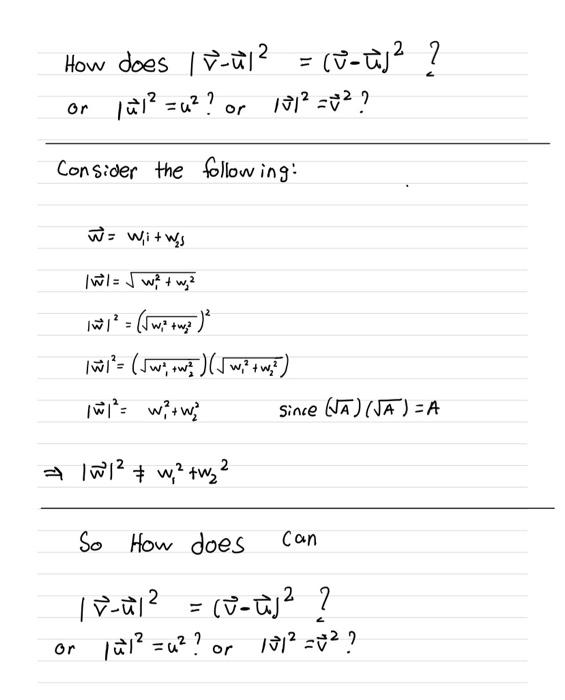 How does |v⃗-u⃗|² = (v⃗-u⃗)² ?
or |u⃗|² = u² ? or |v⃗|² = v⃗² ?
Consider the following:
w⃗ = w₁i + w₂j
|w⃗| = √(w₁² + w₂²)
|w⃗|² = (√(w₁² + w₂²))²
|w⃗|² = (√(w₁² + w₂²))(√(w₁² + w₂²))
|w⃗|² = w₁² + w₂² since (√A)(√A) = A
⇒ |w⃗|² ≠ w₁² + w₂²
So How does can
|v⃗-u⃗|² = (v⃗-u⃗)² ?
or |u⃗|² = u² ? or |v⃗|² = v⃗² ?